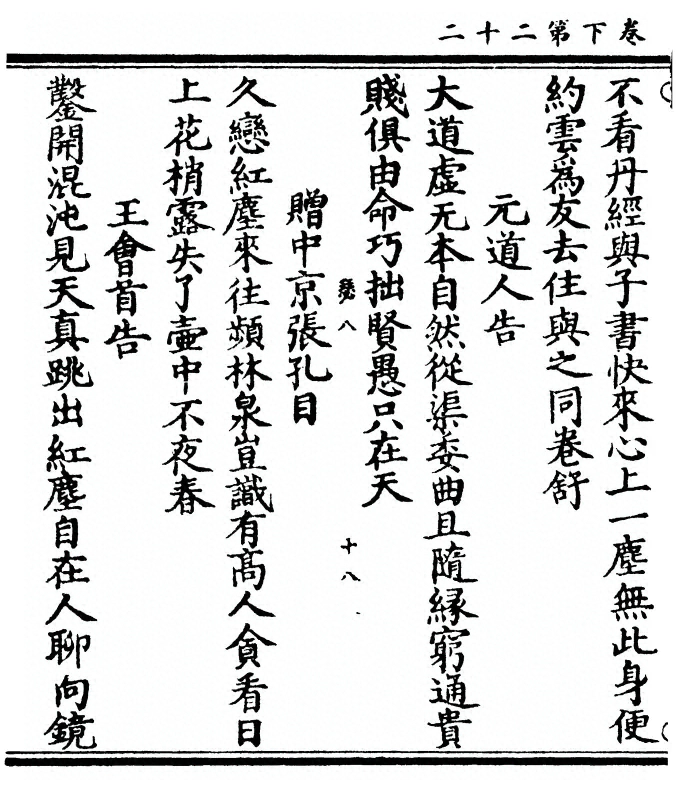 卷下第二十二
不看丹經與子書快來心上一塵無此身便
約雲爲友去住與之同卷舒
元道人告
大道虛无本自然從渠委曲且隨緣窮通貴
賤俱由命巧拙賢愚只在天
八
十八
贈中京張孔目
久戀紅塵來往頻林泉豈識有高人貪看日
上花梢露失了壷中不夜春
王會首告
鑿開混沌見天真跳出紅塵自在人聊向鏡